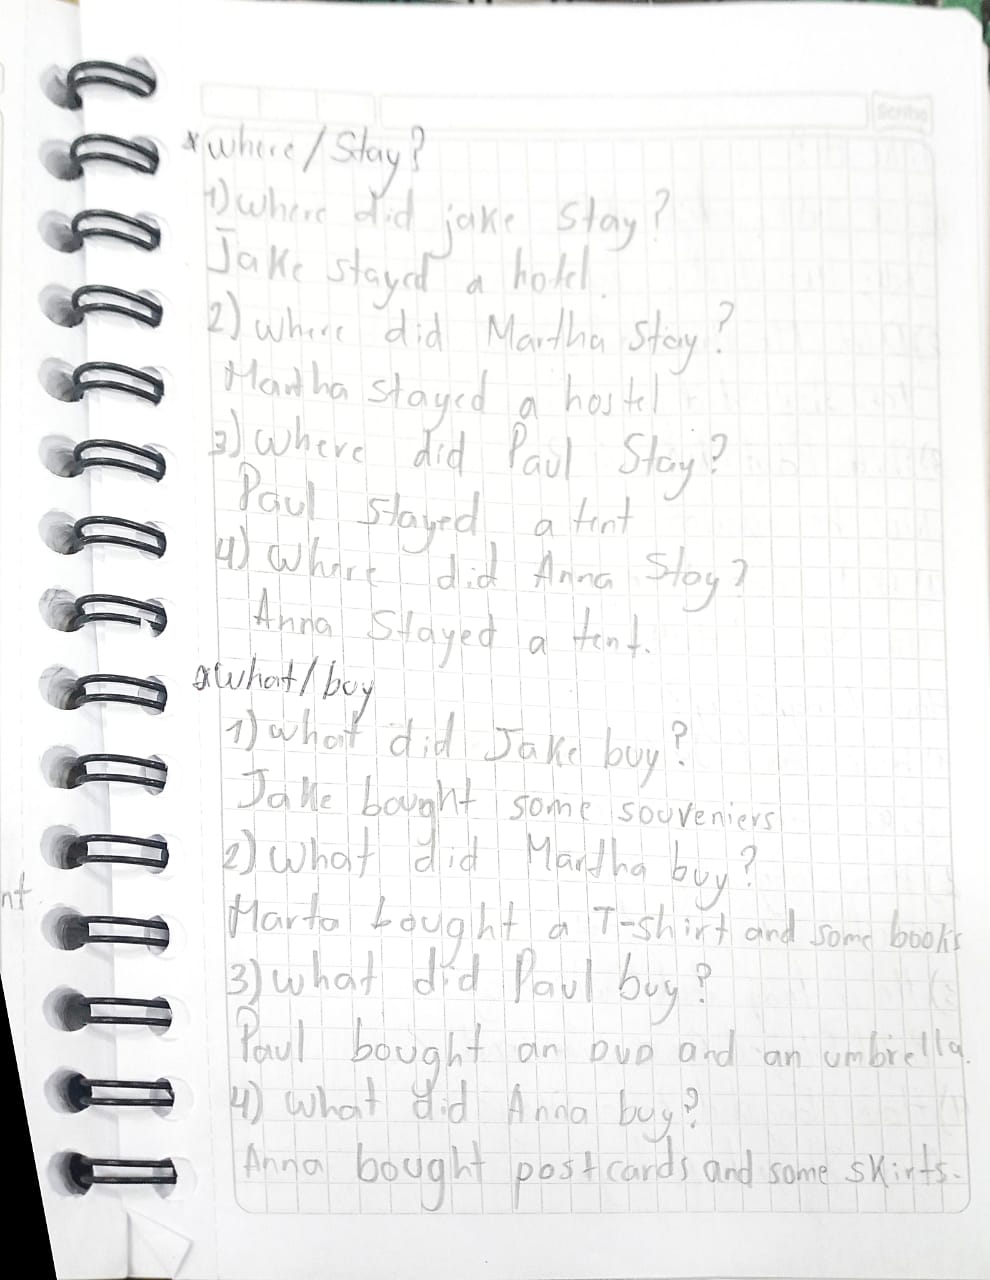 Scribe
*where/Stay?
1) where did jake stay?
Jake stayed a hotel.
2) where did Martha stay?
Martha stayed a hostel
3) where did Paul Stay?
Paul stayed a tent
4) where did Anna Stay?
Anna Stayed a tent.
*what/buy
1) what did Jake buy?
Jake bought some souveniers
2) what did Martha buy?
Marta bought a T-shirt and some books
nt
3) what did Paul buy?
Paul bought an DVD and an umbrella.
4) what did Anna buy?
Anna bought postcards and some skirts.